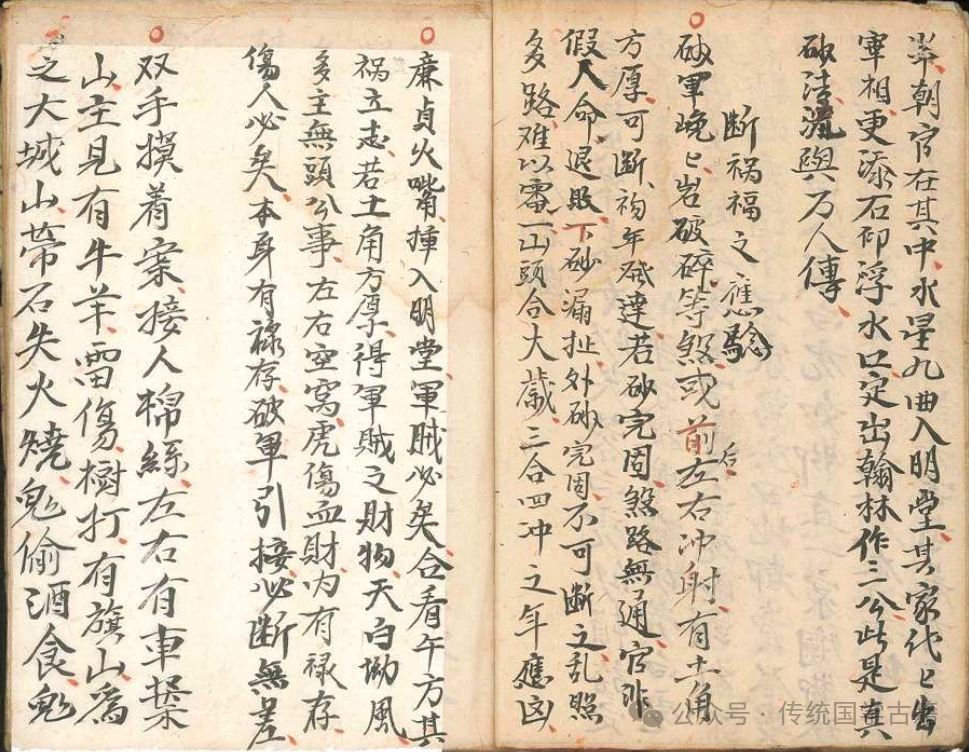 半朝官在其中水星九曲入明堂其家代匕出
宰相更添石印浮水口定出翰林作三公此是真
砂法流與万人傳
断祸福之應驗
破軍巉匕岩破碎等煞或前后左右冲射有土角
方厚可断初年發達若砂完固煞路無通官非
假人命退敗下砂漏扯外砂完固不可断之乱照
多路难以审一山頭合大歲三合四冲之年應凶
廉貞火嘴揷入明堂軍賊必矣合看午方其
祸立志若土角方厚得軍賊之財物天白坳風
多主無頭公事左右空窝虎傷血財内有禄存
傷人必矣本身有禄存破軍引接必断無差
双手摸着案接人棉絲左右有車操
山主見有牛羊雷傷樹打有旗山為
之大城山帶石失火燒鬼偷酒食鬼
公众号·传统国学古籍